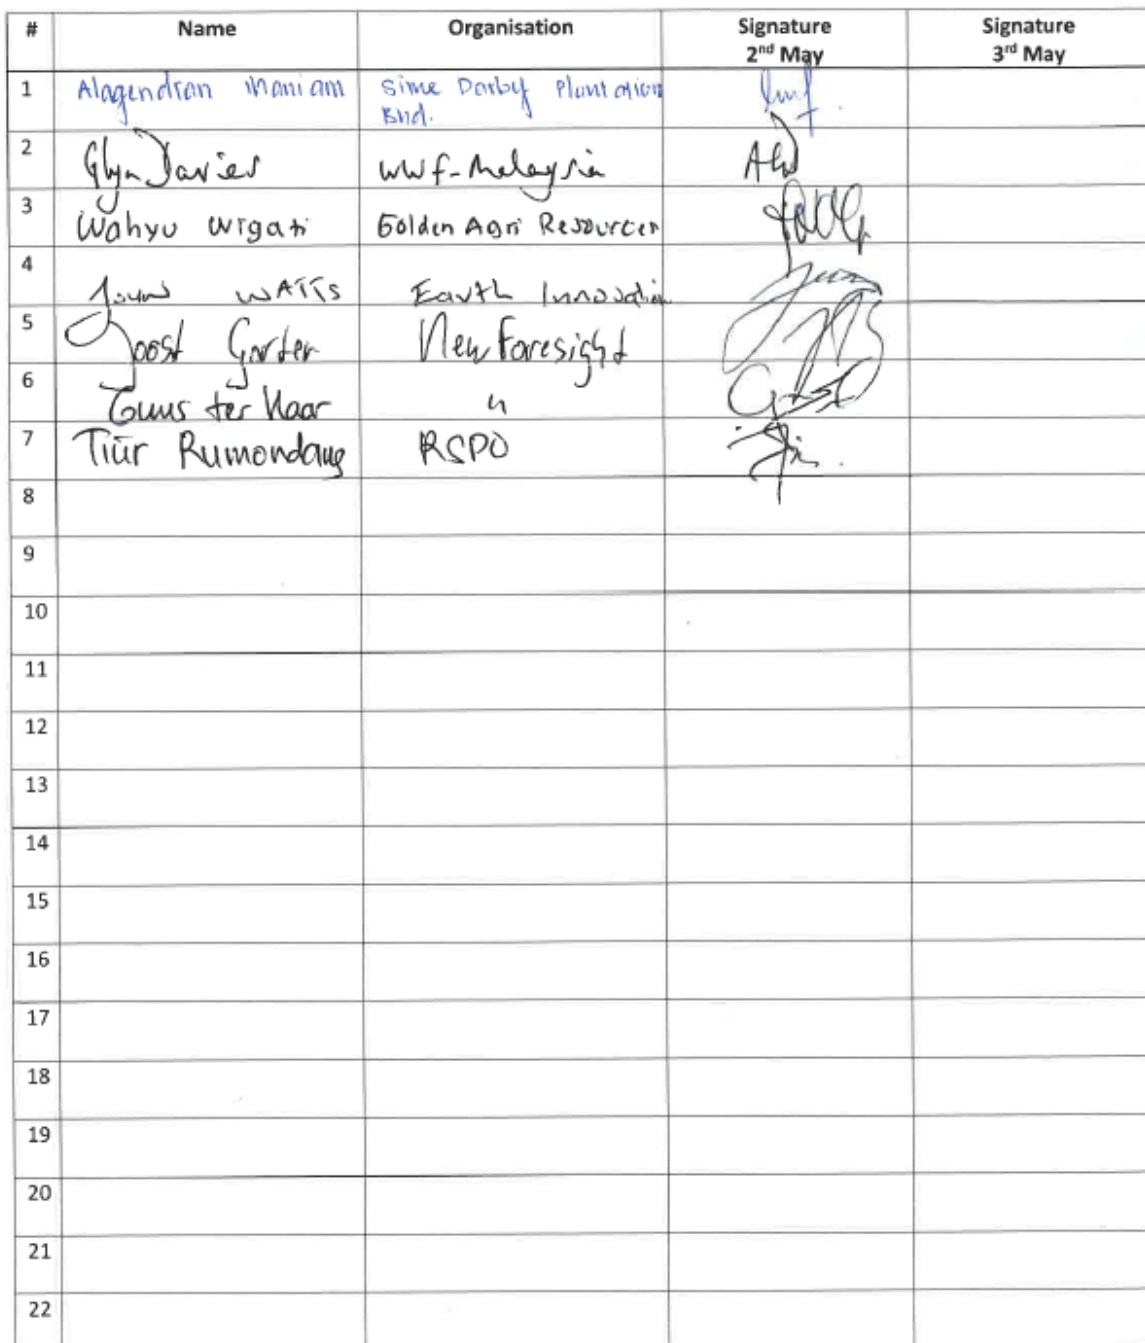 # Name Organisation Signature 2nd May Signature 3rd May
1 Alagendran Maniam Sime Darby Plantation Bhd.
2 Glyn Davies WWF-Malaysia
3 Wahyu Wigati Golden Agri Resources
4 John WATTS Earth Innovation
5 Joost Gorter NewForesight
6 Guus ter Haar "
7 Tiur Rumondang RSPO
8
9
10
11
12
13
14
15
16
17
18
19
20
21
22